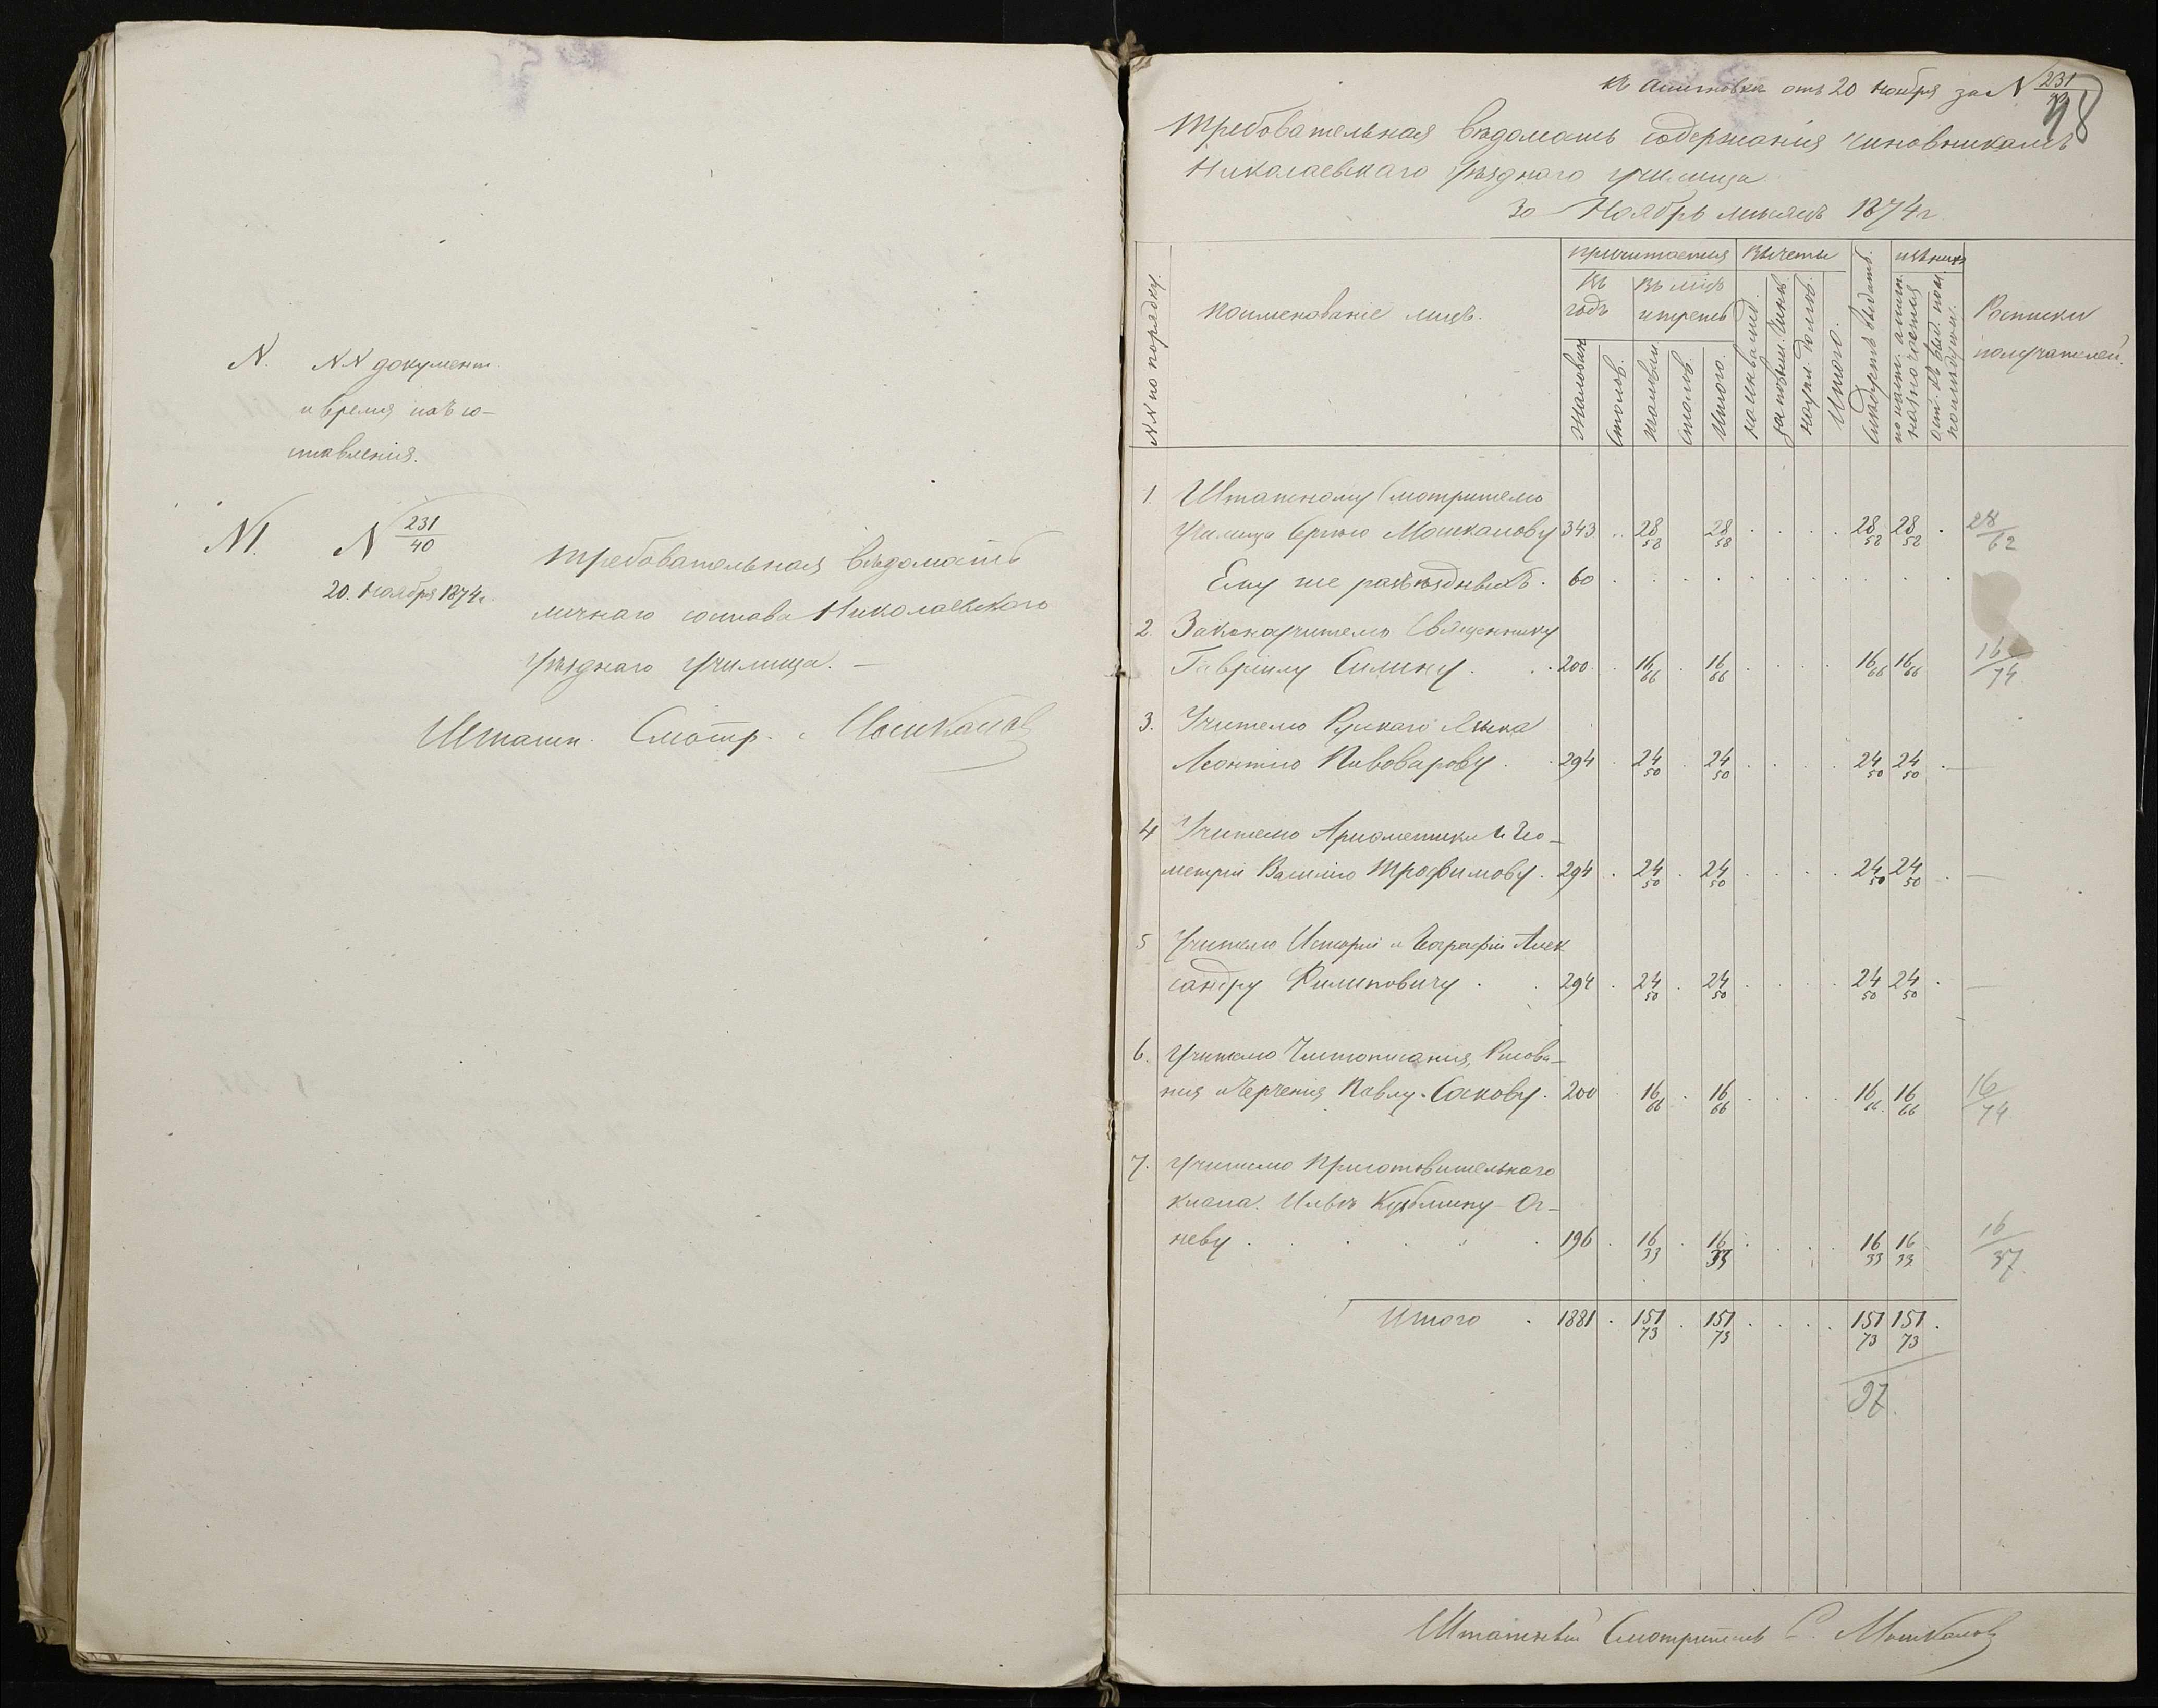 N. NN документ.
и время ихъ со-
ставленія.
N1. N 231/40
20. Ноября 1874 г.
Требовательная вѣдомость
личнаго состава Николаевскаго
уѣзднаго училища. —
Штатн. Смотр. С. Мошкаловъ
Къ Ассигновкѣ отъ 20 Ноября за N 231
98
Требовательная вѣдомость содержанія чиновникамъ
Николаевскаго уѣзднаго училища
За Ноябрь мѣсяцъ 1874 г.
NN по порядку.
Наименованіе лицъ.
Причитается
Въ годъ
Въ мѣс. и треть
Жалован.
Столов.
Жалован.
Столов.
Итого.
Вычеты
Итого.
Слѣдуетъ выдать.
Изъ нихъ
Росписки
получателей.
1 Штатному Смотрителю
училища Сергѣю Мошкалову 343 . 28 58 28 58 . . . . 28 58 28 58 . 28/62
Ему же разъѣздныхъ. 60 . . . . . . . . . .
2. Законоучителю Священнику
Гавріилу Силину. . . 200 . 16 66 . 16 66 . . . . 16 66 16 66 16/74
3. Учителю Русскаго Языка
Леонтію Пивоварову. . 294 . 24 50 . 24 50 . . . . 24 50 24 50 . —
4 Учителю Ариѳметики и Гео-
метріи Василію Трофимову. 294 . 24 50 . 24 50 . . . . 24 50 24 50 . —
5 Учителю Исторіи и Географіи Алек
сандру Филиповичу . . 294 . 24 50 . 24 50 . . . . 24 50 24 50 . —
6. Учителю Чистописанія, Рисова-
нія и Черченія Павлу Сокову. 200 . 16 66 . 16 66 . . . . 16 66 16 66 16/74
7. Учителю Приготовительнаго
класса. Ильѣ Кузьмину Ог-
неву . . . . . 196 . 16 33 . 16 33 . . . . 16 33 16 33 16/37
Итого . 1881 . 151 73 . 151 73 . . . . 151 73 151 73 .
97.
Штатный Смотритель С. Мошкаловъ